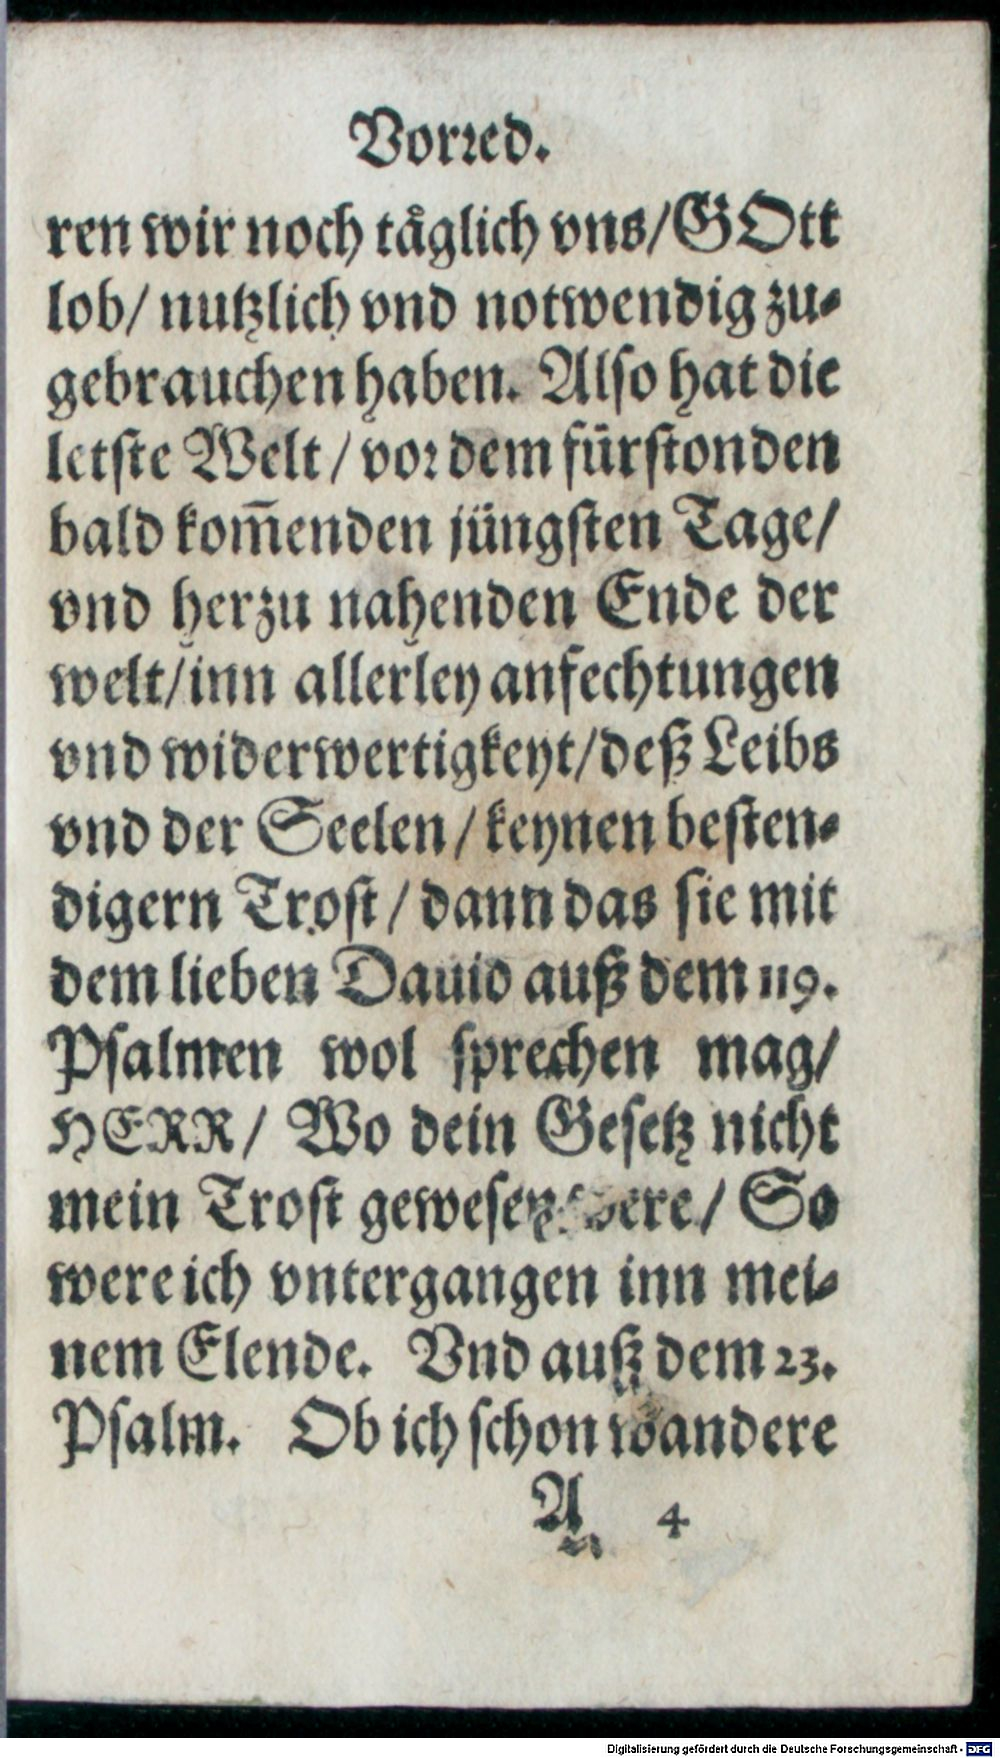 Vorred.
ren wir noch täglich vns/GOtt
lob/ nutzlich vnd notwendig zu-
gebrauchen haben. Also hat die
letste Welt/ vor dem fürstonden
bald kom̃enden jüngsten Tage/
vnd herzu nahenden Ende der
welt/inn allerley anfechtungen
vnd widerwertigkeyt/deß Leibs
vnd der Seelen/keynen besten-
digern Trost/ dann das sie mit
dem lieben Dauid auß dem 119.
Psalmen wol sprechen mag/
HERR/ Wo dein Gesetz nicht
mein Trost gewesen were/ So
were ich vntergangen inn mei-
nem Elende. Vnd auß dem 23.
Psalm. Ob ich schon wandere
A 4
Digitalisierung gefördert durch die Deutsche Forschungsgemeinschaft - DFG